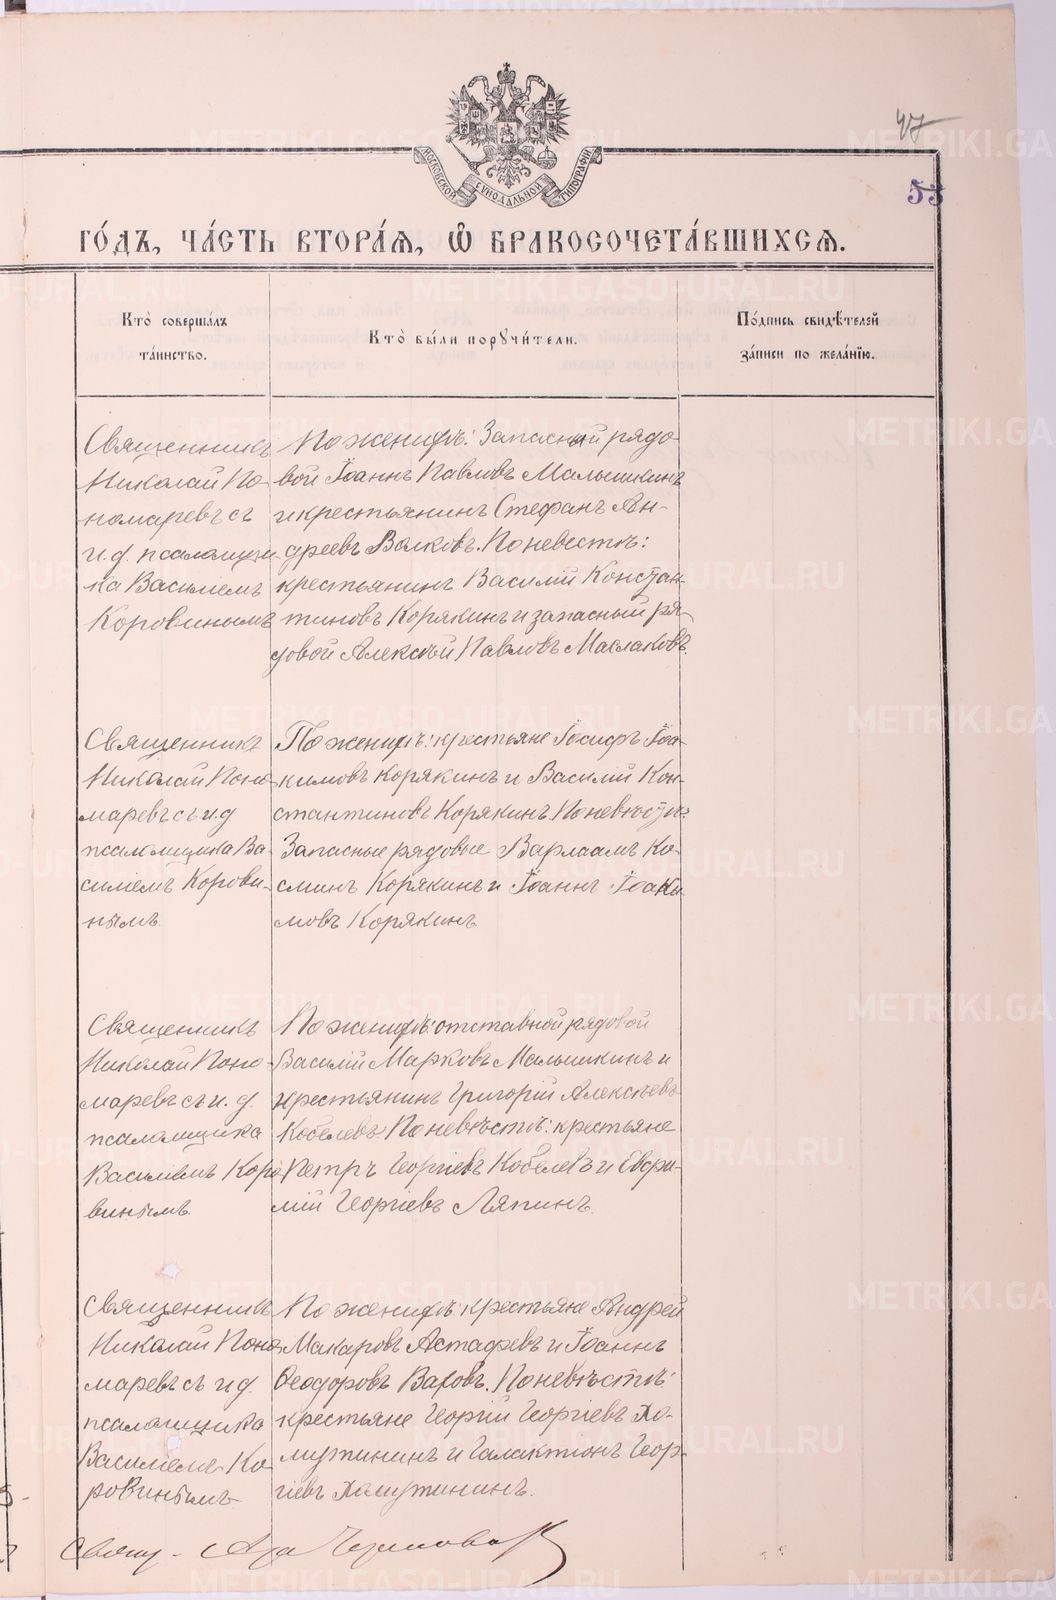 47
53
МОСКОВСКОЙ СѴНОДАЛЬНОЙ ТИПОГРАФІИ
ГО́ДЪ, ЧА́СТЬ ВТОРА́Ѧ, Ѽ БРАКОСОЧЕТА́ВШИХСѦ.
Кто̀ соверша́лъ
та́инство.
Кто̀ бы́ли порꙋчи́тели.
По́дпись свидѣ́телей
за́писи по жела́нїю.
Священникъ
Николай По-
номаревъ съ
и.д. псаломщи
ка Василіемъ
Коровинымъ
По женихѣ: Запасный рядо-
вой Іоаннъ Павловъ Малышкинъ
и крестьянинъ Стефанъ Ан-
дреевъ Волковъ. По невестѣ:
крестьянинъ Василій Констан-
тиновъ Корякинъ и запасный ря-
довой Алексѣй Павловъ Маслаковъ.
Священникъ
Николай Поно
маревъ съ и.д
псаломщика Ва-
силіемъ Корови-
нымъ
По женихѣ: крестьяне Іосифъ Іоа-
кимовъ Корякинъ и Василій Кон-
стантиновъ Корякинъ. По невѣстѣ:
Запасные рядовые Варлаамъ Ко-
сминъ Корякинъ и Іоаннъ Іоаки-
мовъ Корякинъ
Священникъ
Николай Поно-
маревъ съ и.д.
псаломщика
Василіемъ Коро
винымъ.
По женихѣ: отставной рядовой
Василій Марковъ Малышкинъ и
крестьянинъ Григорій Алексѣевъ
Кобелевъ По невѣстѣ: крестьяне
Петръ Георгіевъ Кобелевъ и Евфи-
мій Георгіевъ Ляпинъ.
Священникъ
Николай Поно
маревъ съ и.д.
псаломщика
Василіемъ Ко-
ровинымъ
По женихѣ: крестьяне Андрей
Макаровъ Астафьевъ и Іоаннъ
Ѳеодоровъ Вахов. По невѣстѣ:
крестьяне Георгій Георгіевъ Хо-
мутининъ и Галактіонъ Геор-
гіевъ Хомутининъ.
Свящ.
METRIKI.GASO-URAL.RU